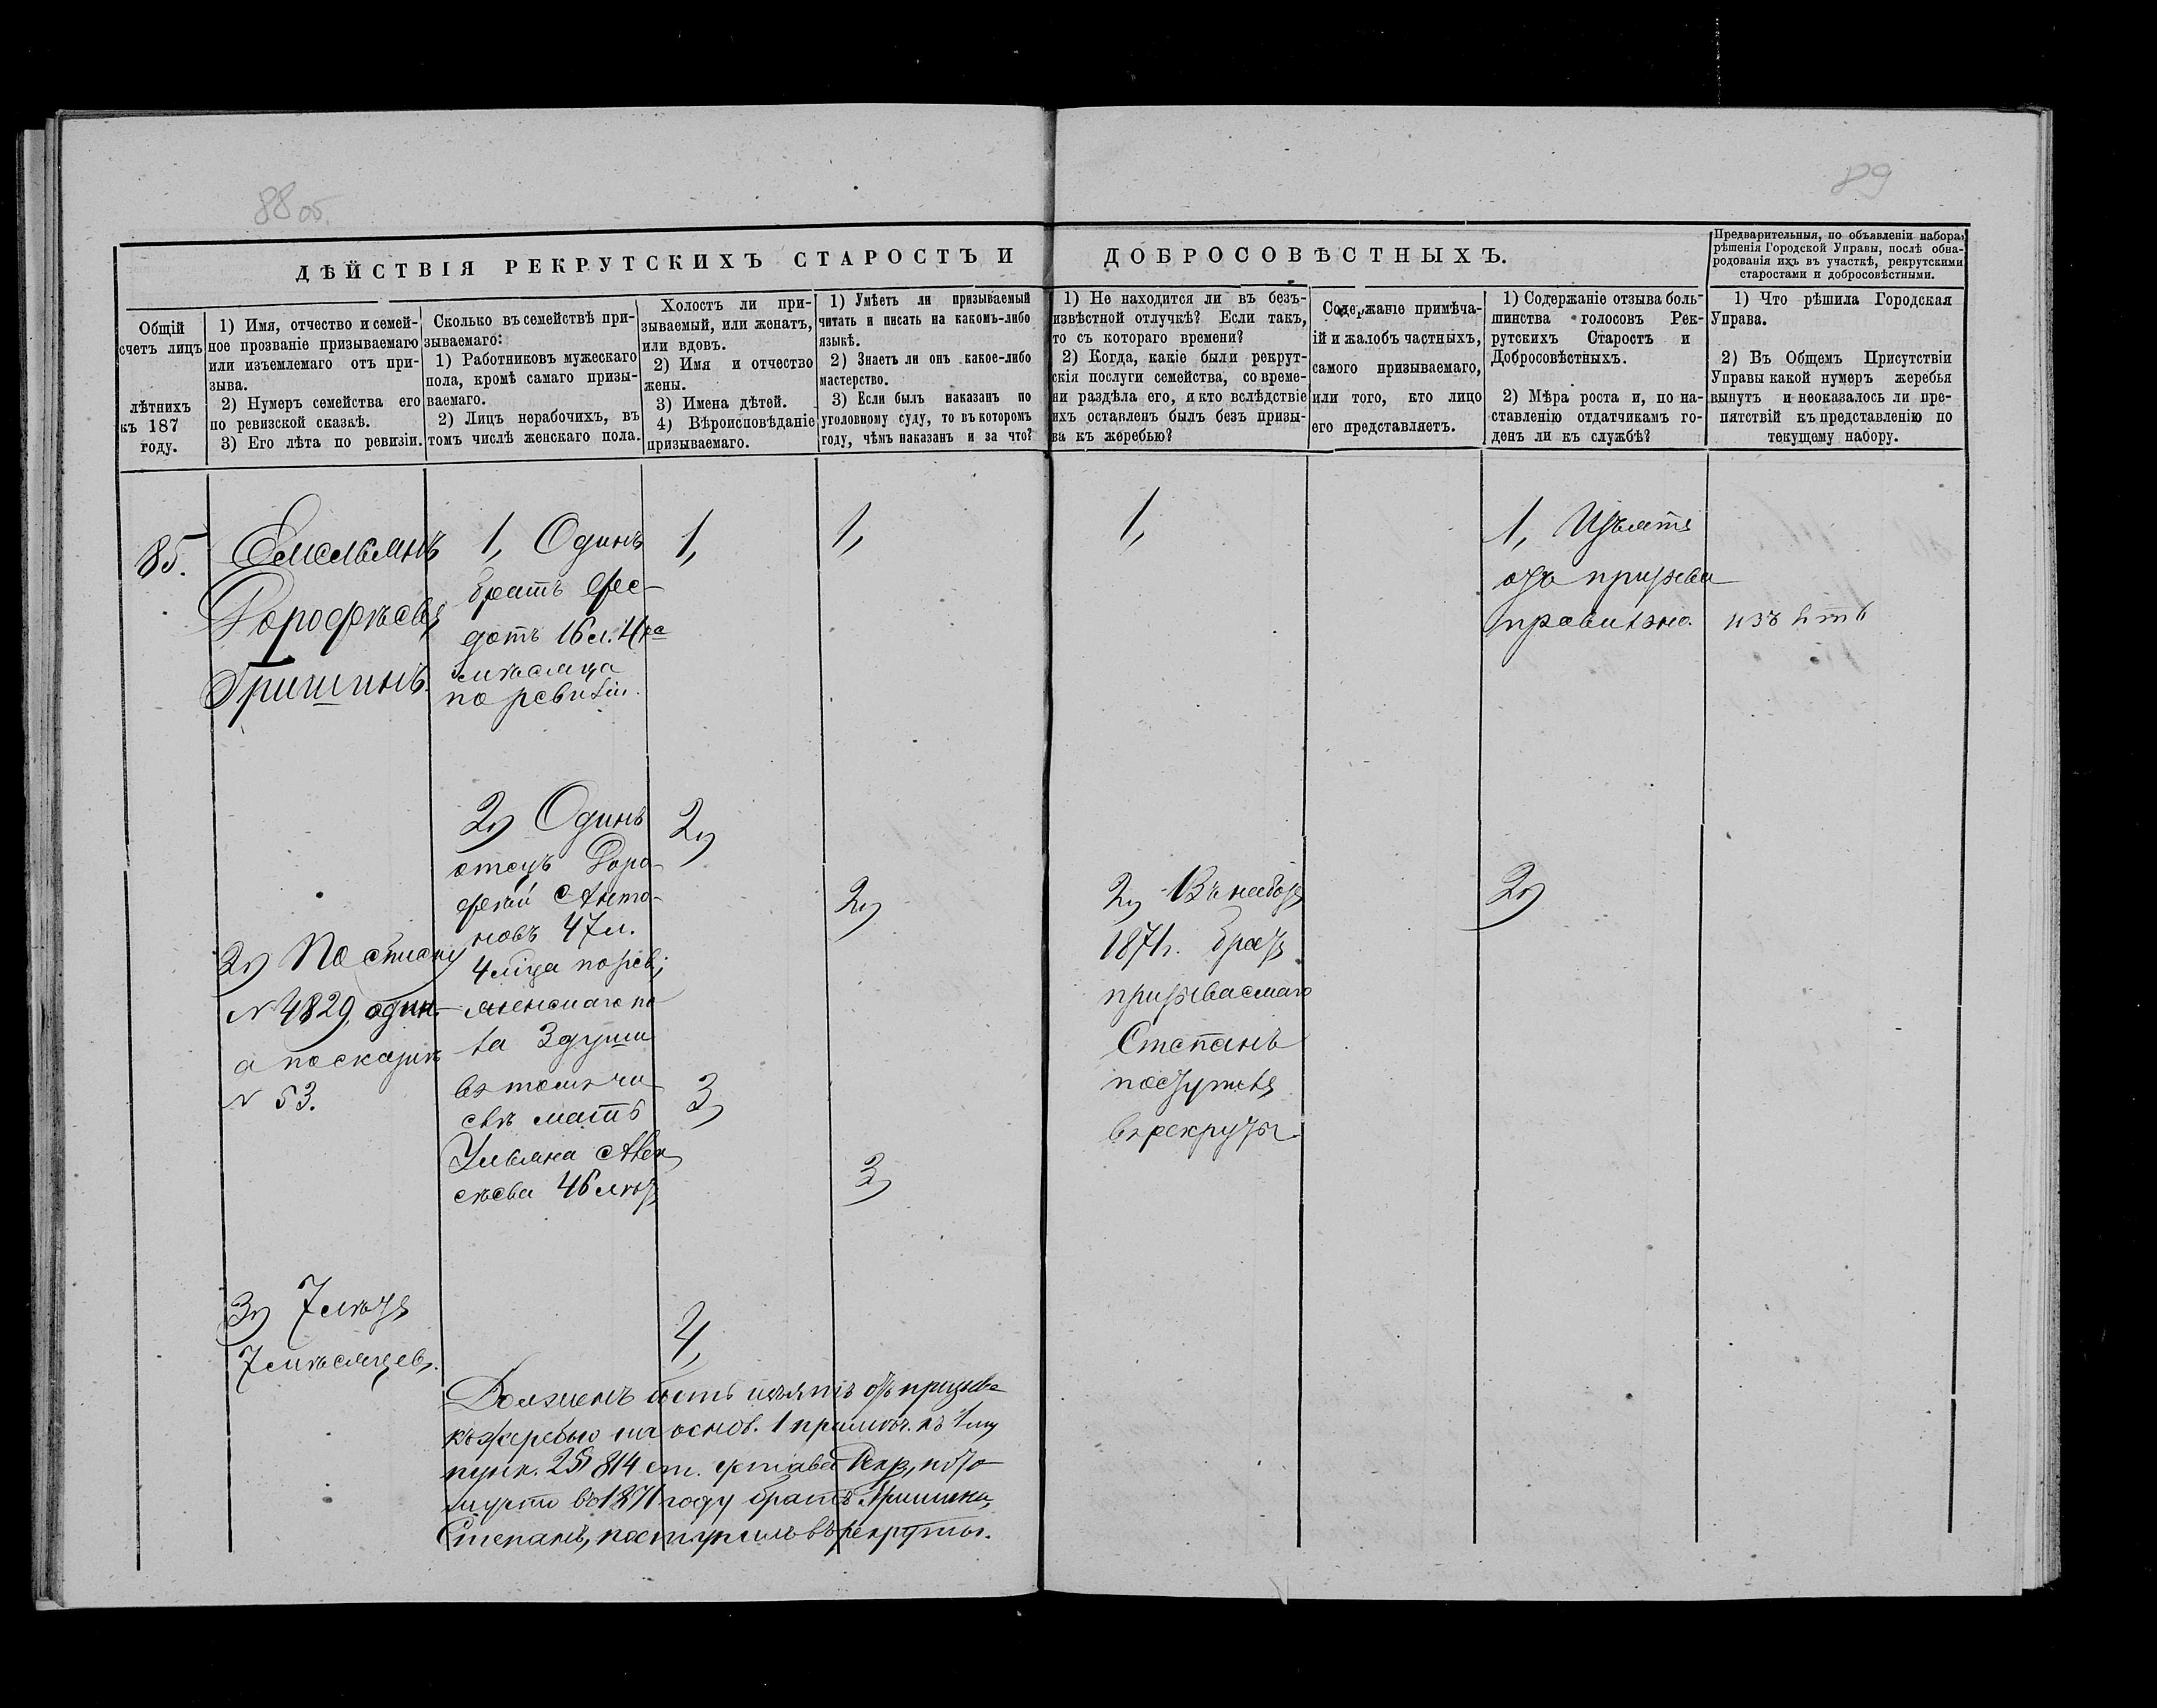 88 об.
89
ДѢЙСТВІЯ РЕКРУТСКИХЪ СТАРОСТЪ И ДОБРОСОВѢСТНЫХЪ.
Предварительныя, по объявленіи набора,
рѣшенія Городской Управы, послѣ обна-
родованія ихъ въ участкѣ, рекрутскими
старостами и добросовѣстными.
Общій
счетъ лицъ
лѣтнихъ
къ 187
году.
1) Имя, отчество и семей-
ное прозваніе призываемаго
или изъемлемаго отъ при-
зыва.
2) Нумеръ семейства его
по ревизской сказкѣ.
3) Его лѣта по ревизіи.
Сколько въ семействѣ при-
зываемаго:
1) Работниковъ мужескаго
пола, кромѣ самаго призы-
ваемаго.
2) Лицъ нерабочихъ, въ
томъ числѣ женскаго пола.
Холостъ ли при-
зываемый, или женатъ,
или вдовъ.
2) Имя и отчество
жены.
3) Имена дѣтей.
4) Вѣроисповѣданіе
призываемаго.
1) Умѣетъ ли призываемый
читать и писать на какомъ-либо
языкѣ.
2) Знаетъ ли онъ какое-либо
мастерство.
3) Если былъ наказанъ по
уголовному суду, то въ которомъ
году, чѣмъ наказанъ и за что?
1) Не находится ли въ безъ-
извѣстной отлучкѣ? Если такъ,
то съ котораго времени?
2) Когда, какіе были рекрут-
скія послуги семейства, со време-
ни раздѣла его, и кто вслѣдствіе
ихъ оставленъ былъ безъ призы-
ва къ жеребью?
Содержаніе примѣча-
ій и жалобъ частныхъ,
самого призываемаго,
или того, кто лицо
его представляетъ.
1) Содержаніе отзыва боль-
шинства голосовъ Рек-
рутскихъ Старостъ и
Добросовѣстныхъ.
2) Мѣра роста и, по на-
ставленію отдатчикамъ го-
денъ ли къ службѣ?
1) Что рѣшила Городская
Управа.
2) Въ Общемъ Присутствіи
Управы какой нумеръ жеребья
вынутъ и неоказалось ли пре-
пятствій къ представленію по
текущему набору.
85.
Емельянъ
Дорофѣевъ
Гришинъ.
2) По списку
№ 4829, один.
а по сказкѣ
№ 53.
3) 7 лѣтъ
7 мѣсяцевъ.
1, Одинъ
братъ Фе-
дотъ 16 л. 4ре
мѣсяца
по ревизіи.
2) Одинъ
отецъ Доро-
фей Анто-
новъ 47 л.
4 мѣца по рев;
женскаго по
ла 3 души
въ томъ чи
слѣ мать
Ульяна Алек
сѣева 46 лѣтъ
1,
2)
3)
4,
1,
2)
3)
1,
2) Въ наборъ
1871 г. братъ
призываемаго
Степанъ
поступилъ
въ рекруты
1, Изъять
отъ призыва
правильно.
2)
изъять
Долженъ быть изъятъ отъ призыва
къ жеребью на основ. 1 примѣч. къ 1му
пунк. 2§ 814 ст. устава Рекр, пото
му что въ 1871 году братъ Гришина,
Степанъ, поступилъ въ рекруты.